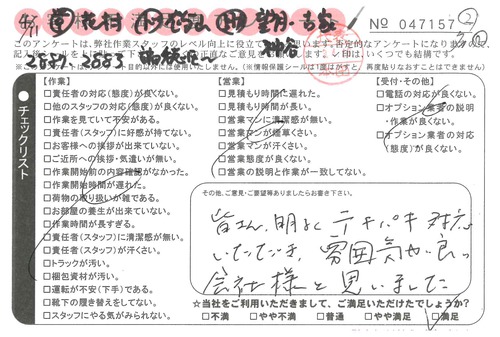 No 047157 ②
このアンケートは、弊社作業スタッフのレベル向上に役立て
2887-3883
【作業】
□責任者の対応(態度)が良くない。
□他のスタッフの対応(態度)が良くない。
□作業を見ていて不安がある。
□責任者(スタッフ)に好感が持てない。
□お客様への挨拶が出来ていない。
□ご近所への挨拶・気遣いが無い。
□作業開始前の内容確認がなかった。
□作業開始時間が遅れた。
□荷物の取り扱いが雑である。
□お部屋の養生が出来ていない。
□作業時間が長すぎる。
□責任者(スタッフ)に清潔感が無い。
□責任者(スタッフ)が汗くさい。
□トラックが汚い。
□梱包資材が汚い。
□運転が不安(下手)である。
□靴下の履き替えをしてない。
□スタッフにやる気がみられない。
チェックリスト
【営業】
□見積もり時間に遅れた。
□見積もり時間が長い。
□営業マンに清潔感が無い。
□営業マンが煙草くさい。
□営業マンが汗くさい。
□営業態度が良くない。
□営業の説明と作業が一致してない。
【受付・その他】
□電話の対応が良くない。
□オプション業者の説明・作業が良くない。
□オプション業者の対応(態度)が良くない。
その他、ご意見・ご要望等ありましたらお書き下さい。
皆さん、明るく テキパキ 対応
いただき、雰囲気が良い
会社様と思いました
☆当社をご利用いただきまして、ご満足いただけたでしょうか?
□不満 □やや不満 □普通 □やや満足 □満足